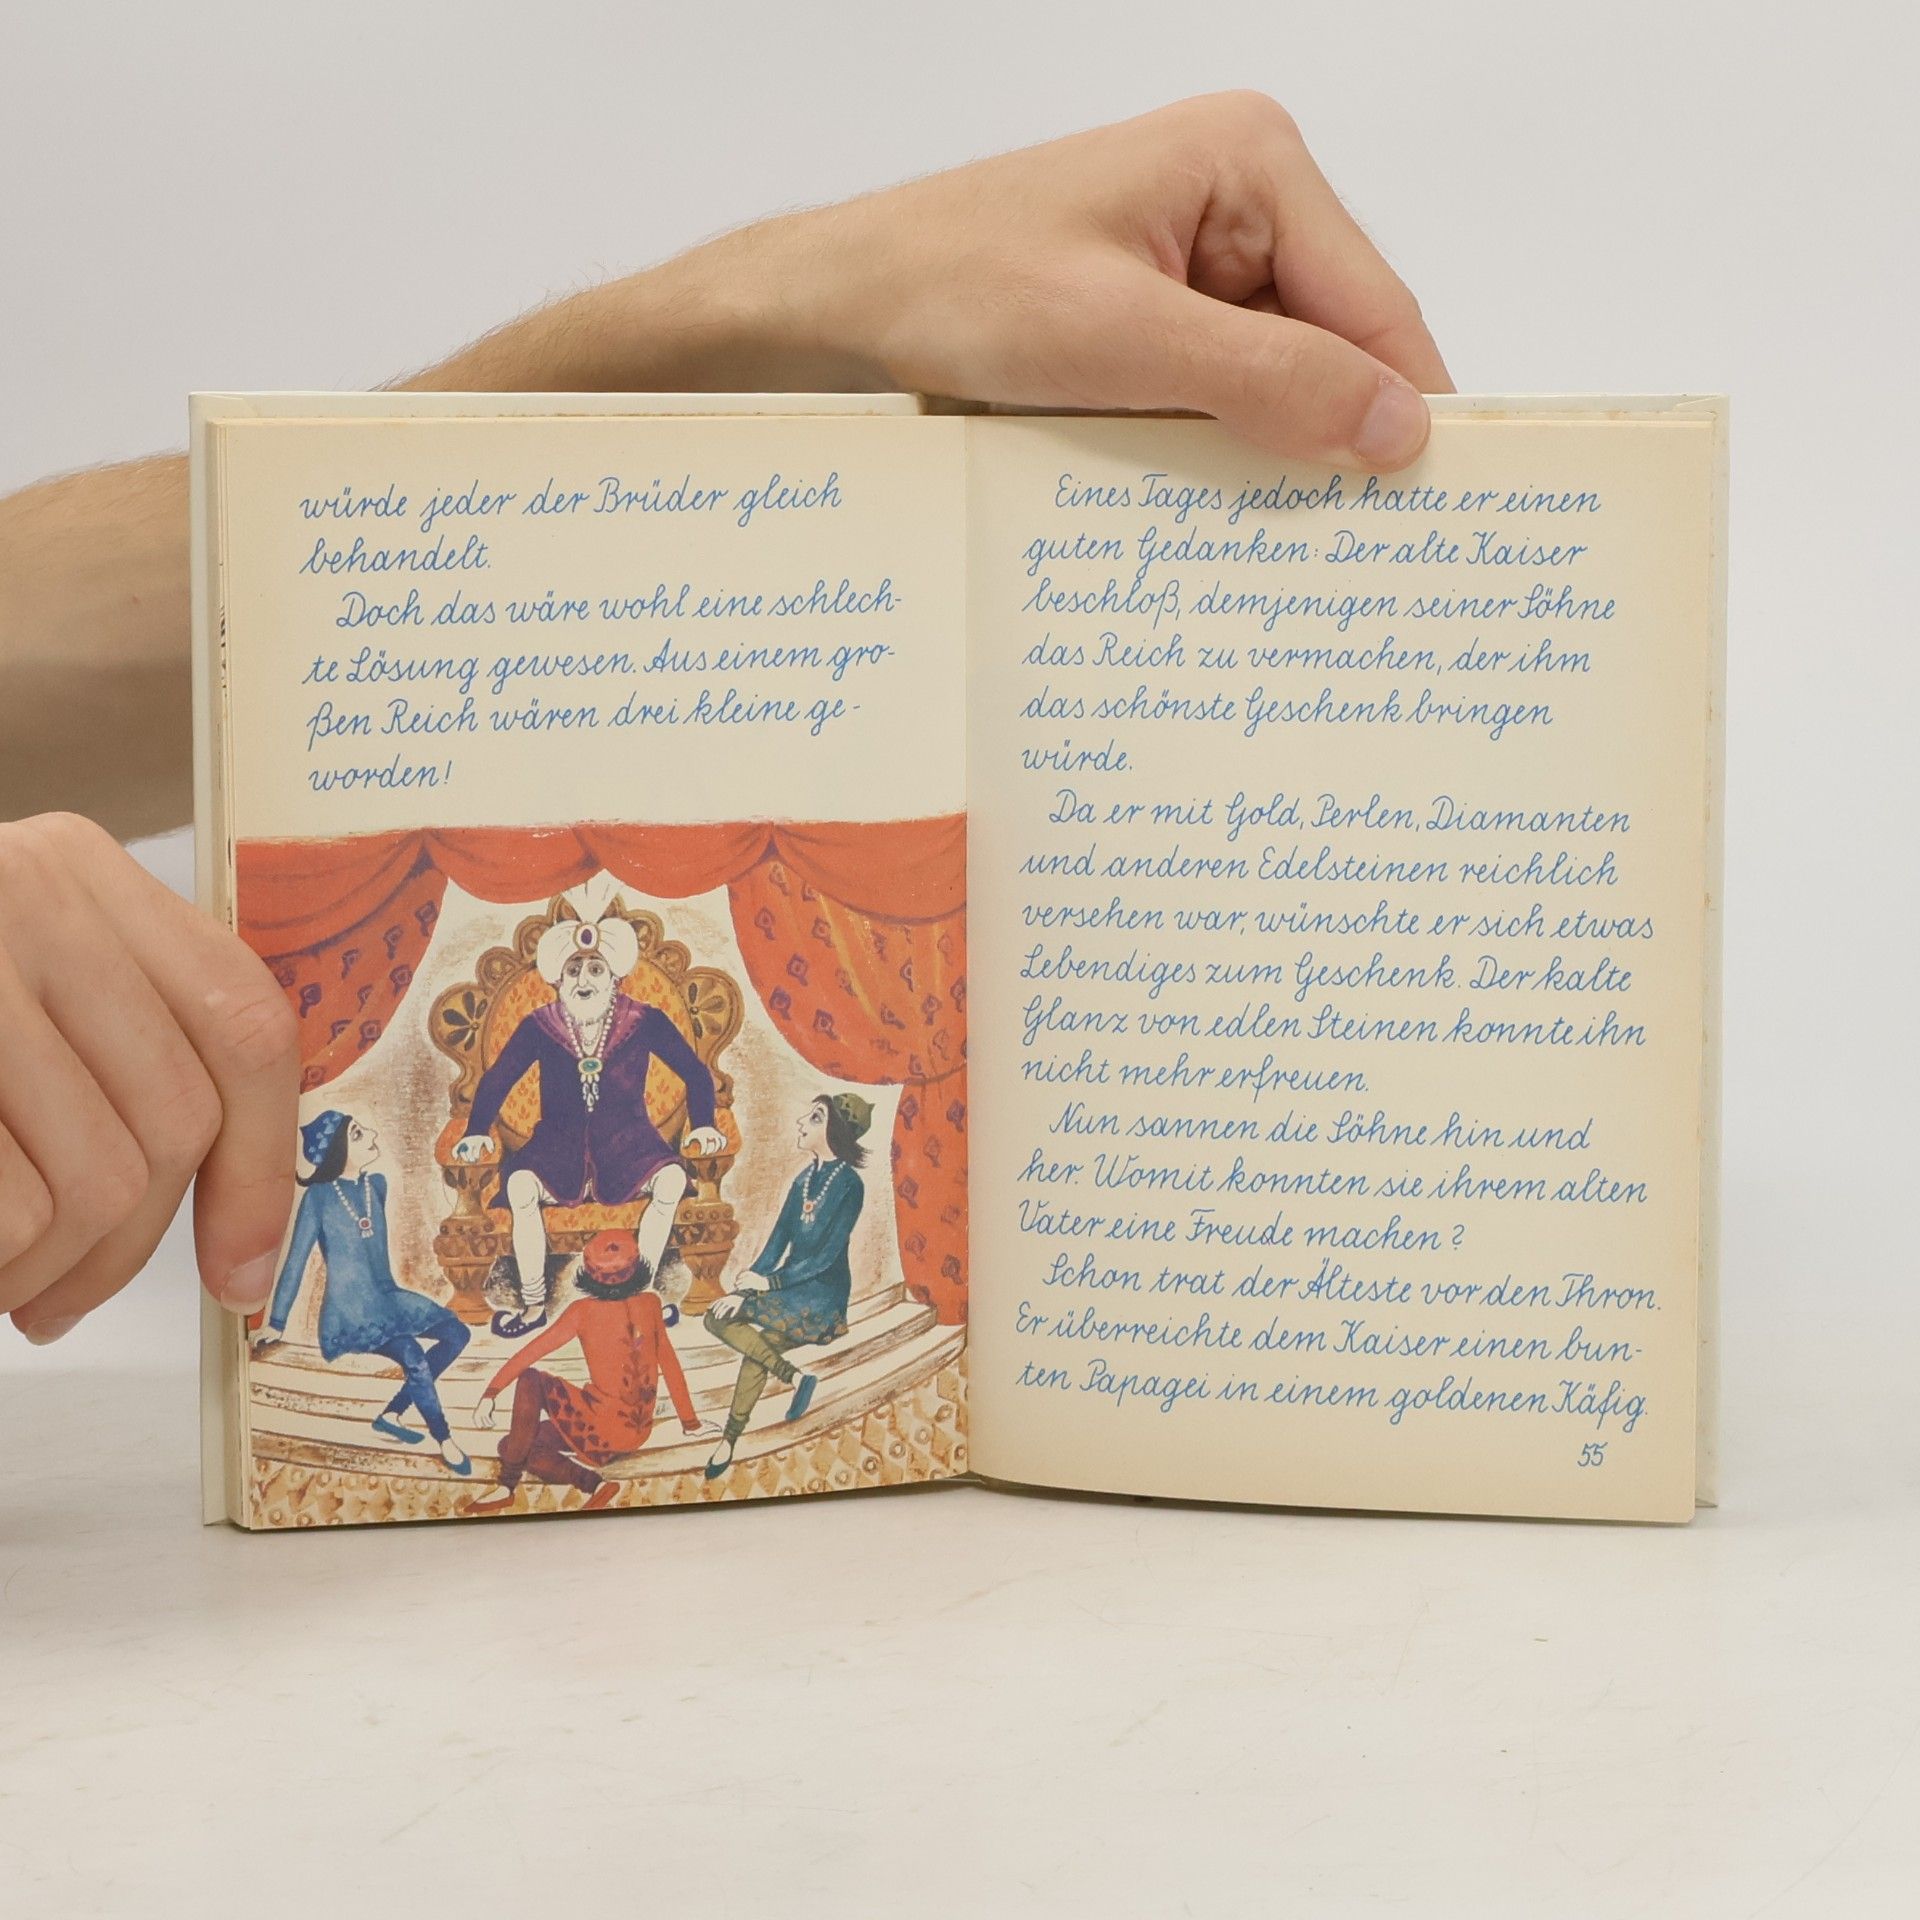 würde jeder der Brüder gleich
behandelt.
Doch das wäre wohl eine schlech-
te Lösung gewesen. Aus einem gro-
ßen Reich wären drei kleine ge-
worden!
Eines Tages jedoch hatte er einen
guten Gedanken: Der alte Kaiser
beschloß, demjenigen seiner Söhne
das Reich zu vermachen, der ihm
das schönste Geschenk bringen
würde.
Da er mit Gold, Perlen, Diamanten
und anderen Edelsteinen reichlich
versehen war, wünschte er sich etwas
Lebendiges zum Geschenk. Der kalte
Glanz von edlen Steinen konnte ihn
nicht mehr erfreuen.
Nun sannen die Söhne hin und
her. Womit konnten sie ihrem alten
Vater eine Freude machen?
Schon trat der Älteste vor den Thron.
Er überreichte dem Kaiser einen bun-
ten Papagei in einem goldenen Käfig.
55